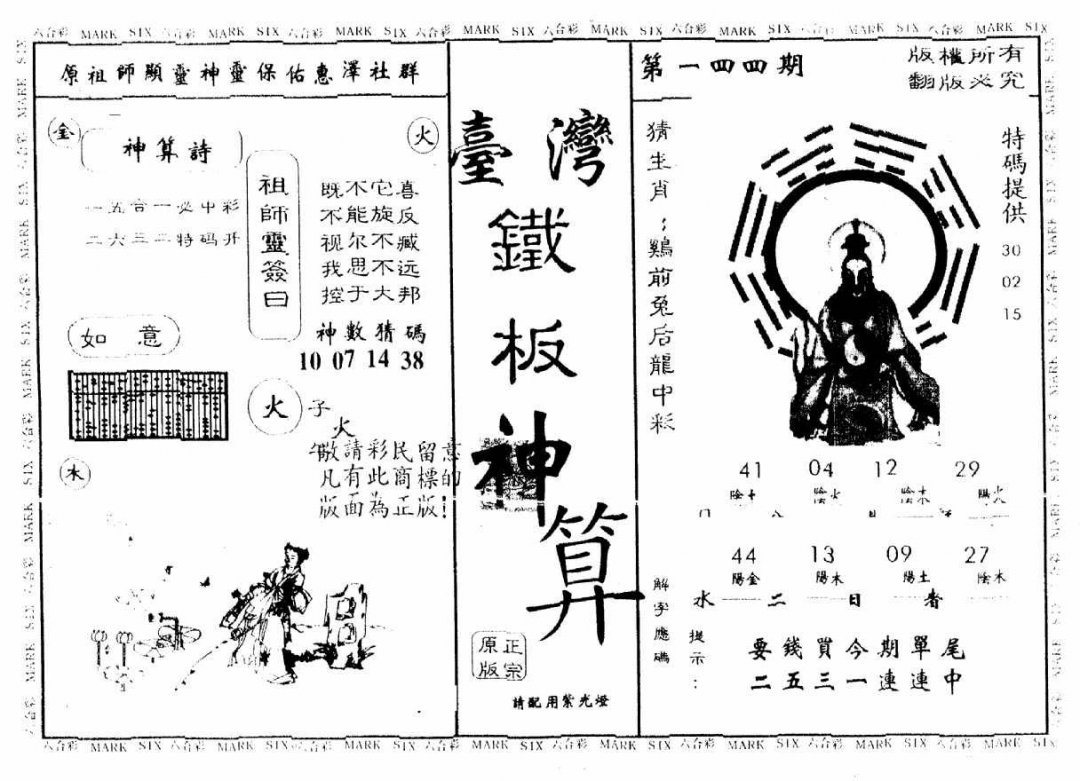 六合彩 MARK SIX 六合彩 MARK SIX 六合彩 MARK SIX 六合彩 MARK SIX 六合彩 MARK SIX 六合彩 MARK SIX 六合彩 MARK SIX 六合彩 MARK SIX
原祖師顯靈神靈保佑惠澤社群
金
火
神算詩
一五合一必中彩
二六三二特码开
祖師靈簽曰
既不它喜
不能旋反
视尔不臧
我思不远
控于大邦
神數猜碼
10 07 14 38
如意
火
子
火
敬請彩民留意
凡有此商標的
版面為正版!
木
臺灣
鐵
板
神
算
正宗
原版
請配用紫光燈
第一四四期
版權所有
翻版必究
猜生肖:鷄前兔后龍中彩
特碼提供
30
02
15
41 04 12 29
陰土 陰火 陰木 陽火
44 13 09 27
陽金 陽木 陽土 陰木
水 二 日 者
解字應碼
提示:
要錢買今期單尾
二五三一連連中
六合彩 MARK SIX 六合彩 MARK SIX 六合彩 MARK SIX 六合彩 MARK SIX 六合彩 MARK SIX 六合彩 MARK SIX 六合彩 MARK SIX 六合彩 MARK SIX